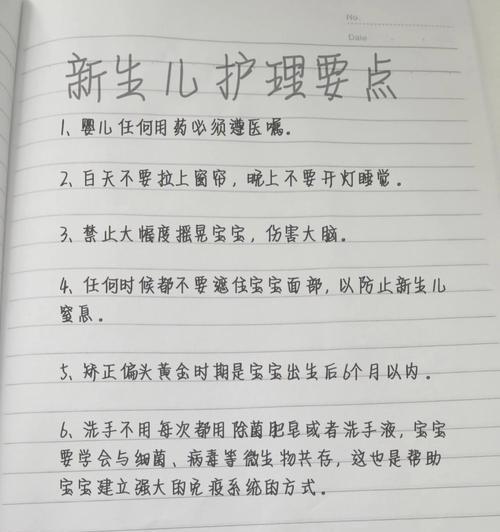 No.
Date
新生儿护理要点
1、婴儿任何用药必须遵医嘱。
2、白天不要拉上窗帘，晚上不要开灯睡觉。
3、禁止大幅度摇晃宝宝，伤害大脑。
4、任何时候都不要遮住宝宝面部，以防止新生儿
窒息。
5、矫正偏头黄金时期是宝宝出生后6个月以内。
6、洗手不用每次都用除菌肥皂或者洗手液，宝宝
要学会与细菌、病毒等微生物共存，这也是帮助
宝宝建立强大的免疫系统的方式。